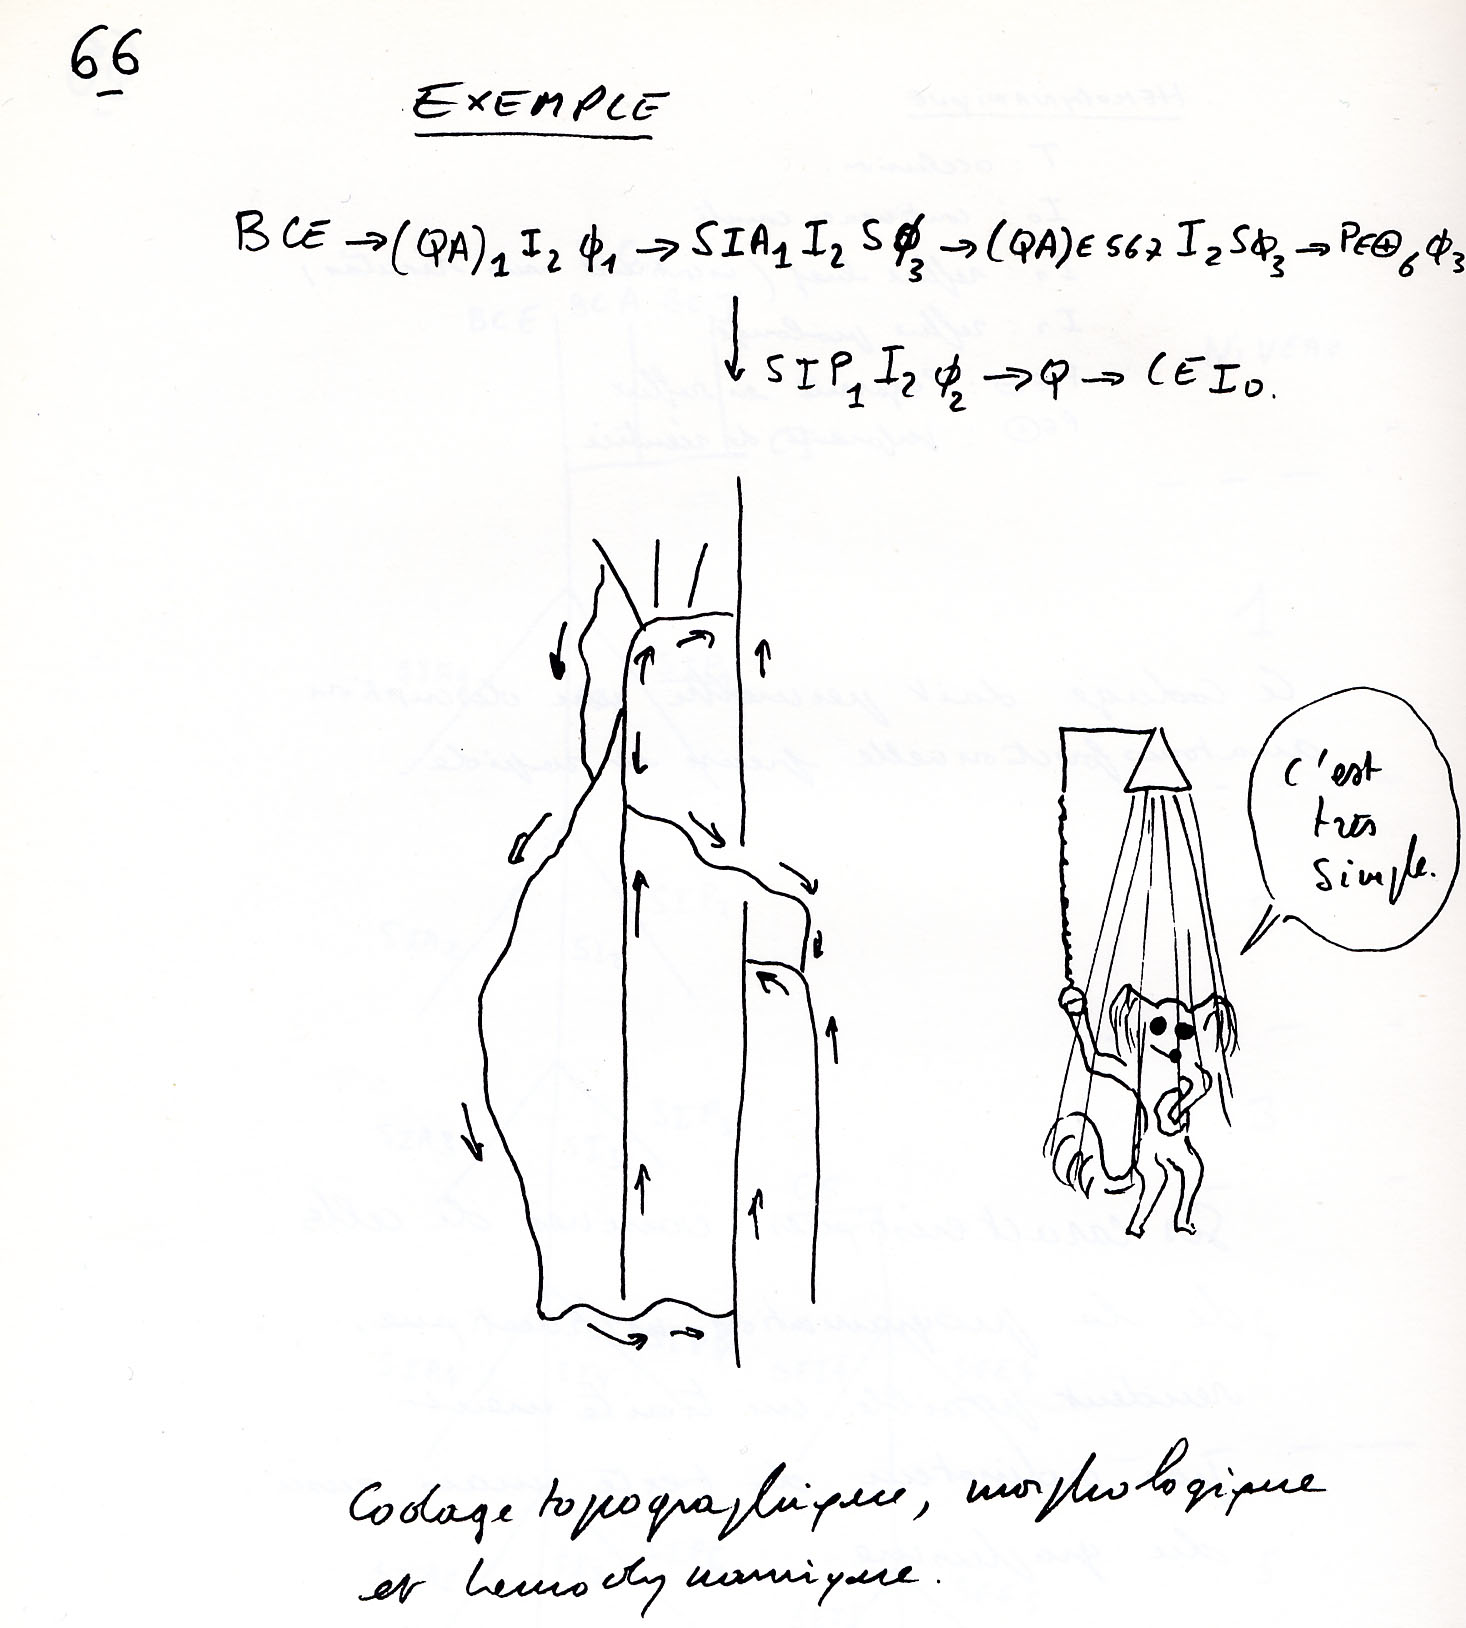 66
EXEMPLE
BCE → (QA)₁ I₂ ϕ₁ → SIA₁ I₂ Sϕ₃ → (QA)E 567 I₂ Sϕ₃ → PE⊕₆ ϕ₃
↓ SIP₁ I₂ ϕ₂ → Q → CE I₀.
C'est
très
simple.
Codage topographique, morphologique
et hemodynamique.